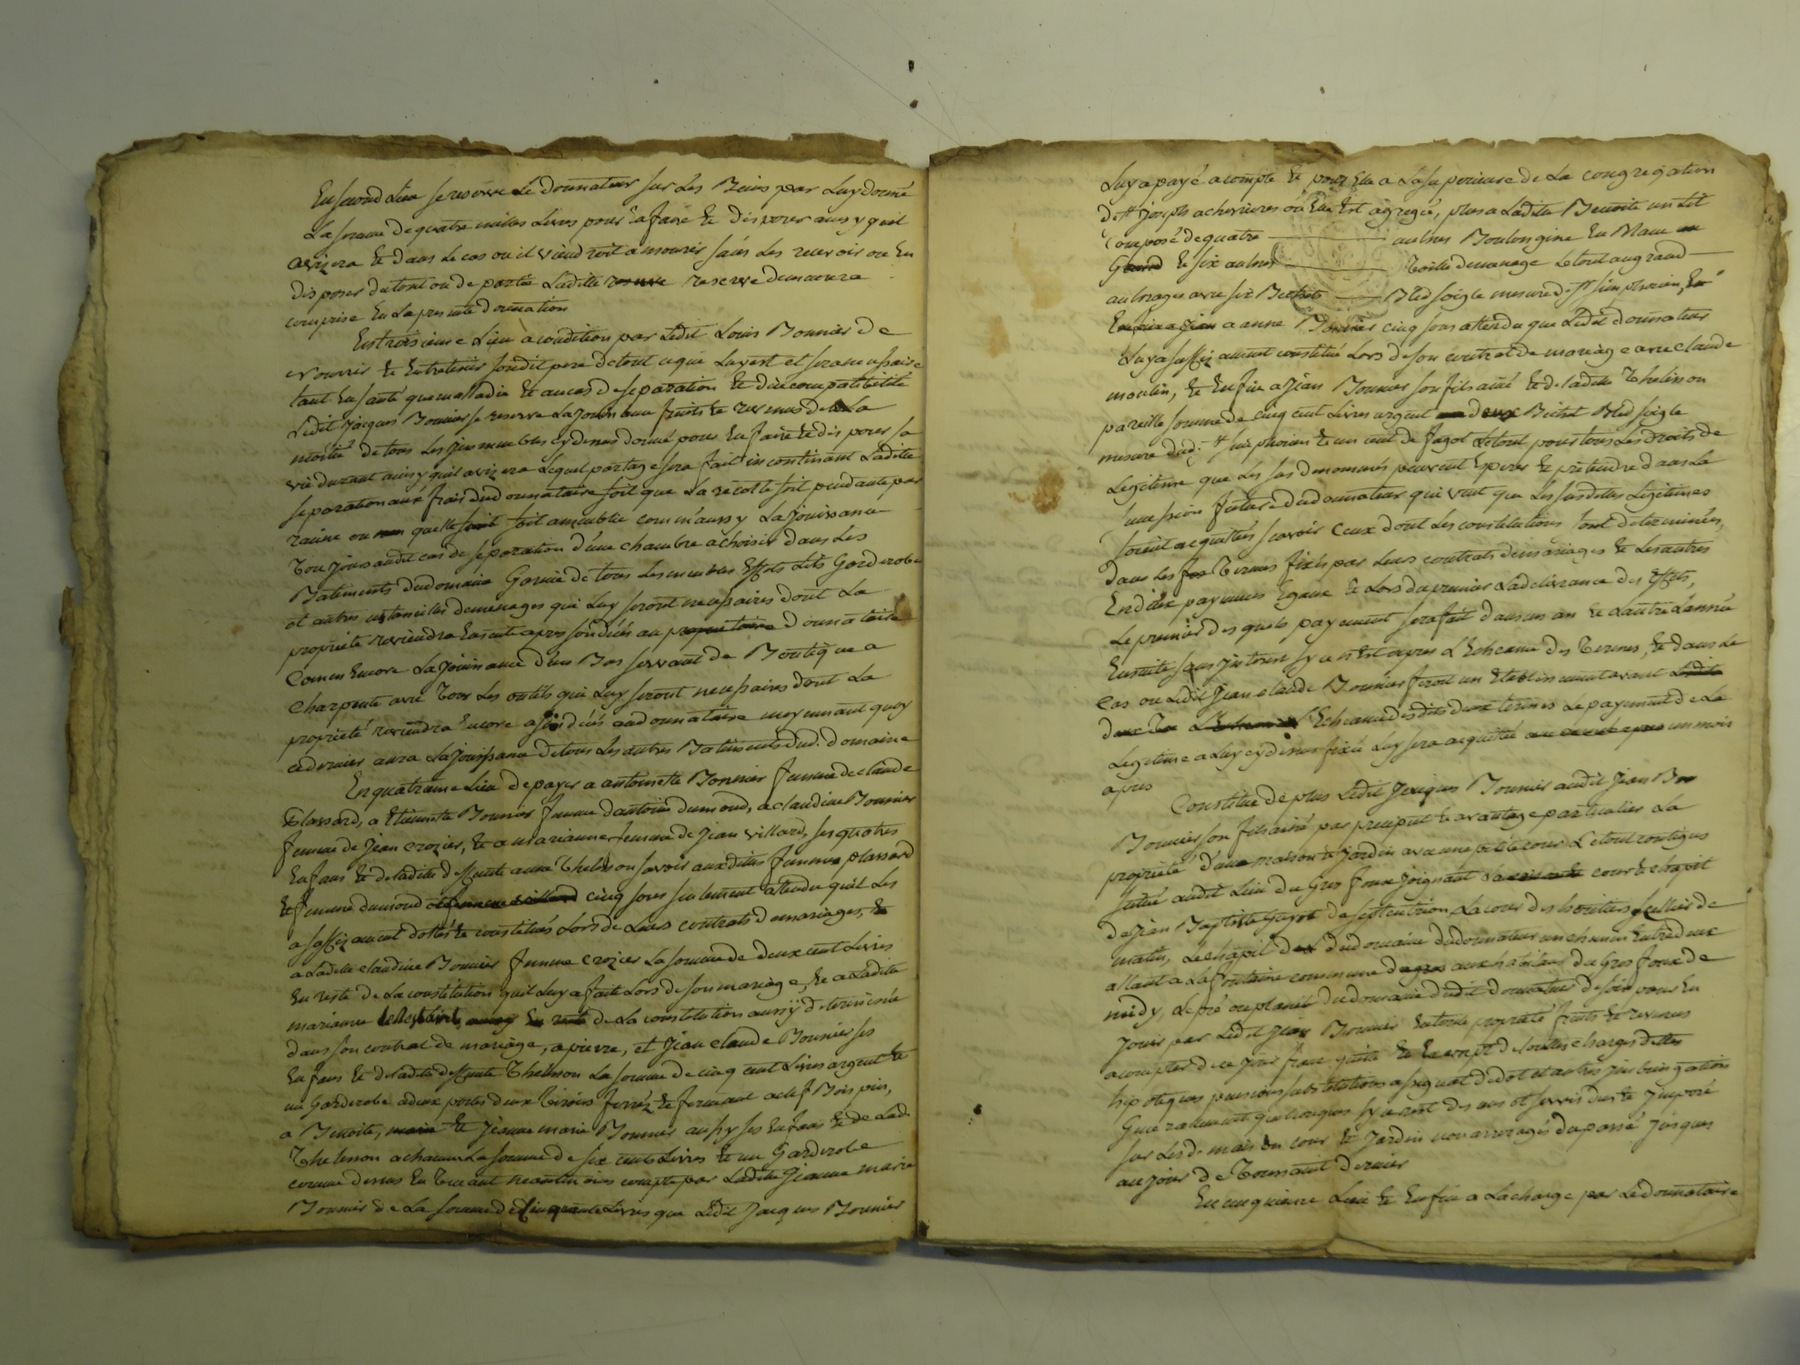 En second Lieu se reserve Le donnateur sur Les Biens par Luy donné
La somme de quatre milles Livres pour En faire Et disposer ainsy quil
avizera Et dans Le cas ou il viendroit a mourir sans Les recevoir ou En
disposer du tout ou de partie Laditte reserve demeurera
comprise En La presente donnation
En troisieme Lieu a condition par Ledit Louis Bonnier de
Nourrir Et Entretenir sondit pere de tout ce qui Luy est et sera necessaire
tant En santé que maladie Et au cas de separation Et d'incompatibilité
Ledit Jacques Bonnier se reserve La jouissance fruits Et revenus de La
moitié de tous Les immeubles cy dessus donné pour En faire Et disposer sa
vie durant ainsy quil avizera Lequel partage sera fait incontinant Laditte
separation aux frais dud donnataire soit que La recolte soit pendante par
racine ou quelle soit ameublie comm'aussy La jouissance
Toujours audit cas de separation d'une chambre a choisir dans Les
Batiments dud domaine Garnie de tous Les meubles Effets Lits Garderobe
et autres ustancilles de menages qui Luy seront necessaires dont La
proprieté reviendra Ensuite apres son décés au donnataire
Comm Encore La jouissance d'un Bas servant de Boutique a
Charpente avec Tous Les outils qui Luy seront necessaires dont La
proprieté reviendra Encore a son décés au donnataire moyennant quoy
ce dernier aura La jouissance de tous Les autres Batiments dud. domaine
En quatrieme Lieu de payer a antoinette Bonnier femme de claude
Plassard, a Etiennette Bonnier femme d'antoine dumond, a claudine Bonnier
femme de Jean crozier, Et a marianne femme de Jean villard, ses quatres
Enfans Et de Ladite deffunte anne Thelisson savoir auxdittes femmes plassard
Et femme dumond cinq sous seulement attendu quil Les
a assez avent dottés Et constitués Lors de Leurs contrats de mariages, Et
a Laditte claudine Bonnier femme crozier La somme de deux cent Livres
En reste de La constitution quil Luy a fait Lors de son mariage, Et a Ladite
marianne de La constitution aussy determinée
dans son contrat de mariage, a pierre, et Jean claude Bonnier ses
Enfans Et de Ladite deffunte Thelisson La somme de cinq cent Livres argent Et
un Garderobe a deux portes deux Tiroirs ferrés Et fermant a clef Bois pin,
a Benoite, Et Jeanne marie Bonnier aussy ses Enfans Et de Lad.
Thelisson a chacune La somme de six cents Livres Et un Garderobe
comme dessus En Tenant neantmoins compte par Laditte Jeanne marie
Bonnier de La somme de cinquante Livres que Ledit Jacques Bonnier
Luy a payé a compte Et pour Elle a La superieure de La congregation
de St Joseph a chevrieres ou Elle Est agregée, plus a Laditte Benoite un Lit
Composé de quatre aulnes Boulongine En Blanc
Et six aulnes Toille de menage Le tout au grand
aulnages avec six Bichets Bled soigle mesure de St simphorien,
a anne Bonnier cinq sous attendu que Ledit donnateur
Luy a assez avent constitué Lors de son contrat de mariage avec claude
moulin, Et Enfin a Jean Bonnier son fils ainé Et de Laditte Thelisson
pareille somme de cinq cent Livres argent deux Bichet Bled soigle
mesure dud. St simphorien Et un cent de fagot Le tout pour tous Les droits de
Legitime que Les sus denommés peuvent Esperer Et pretendre dans La
succession future dud donnateur qui veut que Les susdittes Legitimes
soient acquittées scavoir Ceux dont Les constitutions sont determinées,
dans Les Termes fixés par Leurs contrats de mariages Et Les autres
En deux payements Egaux Et Lors du premier La delivrance des Effets,
Le premier des quels payement sera fait dans un an Et Lautre L'année
Ensuite sans Jnterest sy ce n'est apres L'Echeance des Termes, Et dans Le
Cas ou Ledit Jean claude Bonnier feroit un Etablissement avant
L'Echeance desdits deux termes Le payement de La
Legitime a Luy cy dessus fixée Luy sera acquittée un mois
apres
Constitue de plus Ledit Jacques Bonnier audit Jean
Bonnier son fils ainé par preciput Et avantage particulier La
proprieté d'une maison Et Jardin avec une petite cour Le tout contigus
situé audit Lieu du Gros foux Joignant La cour Et chapit
de Jean Baptiste Guyot de septentrion, La cour des heritiers de
matin, Le chapit dud domaine dudonnateur un chemin Entre deux
allant a La fontaine commune aux habitans du Gros foux de
midy, Le pré ou planil dudomaine dudit donnateur de soir pour En
Jouir par Ledit Jean Bonnier En toute proprieté fruits Et revenus
a compter de ce jour franc quitte Et Exempt de toutes charges dettes
hipoteques pensions substitutions assignat de dot et autres Jmbringations
Generalement quelconques sy ce n'est des cens et servis dus Et Jmposé
sur Les d. maison cour Et Jardin non arreragés du passé jusques
au jour de Toussaint dernier
En cinquieme Lieu Et Enfin a La charge par Ledonnataire